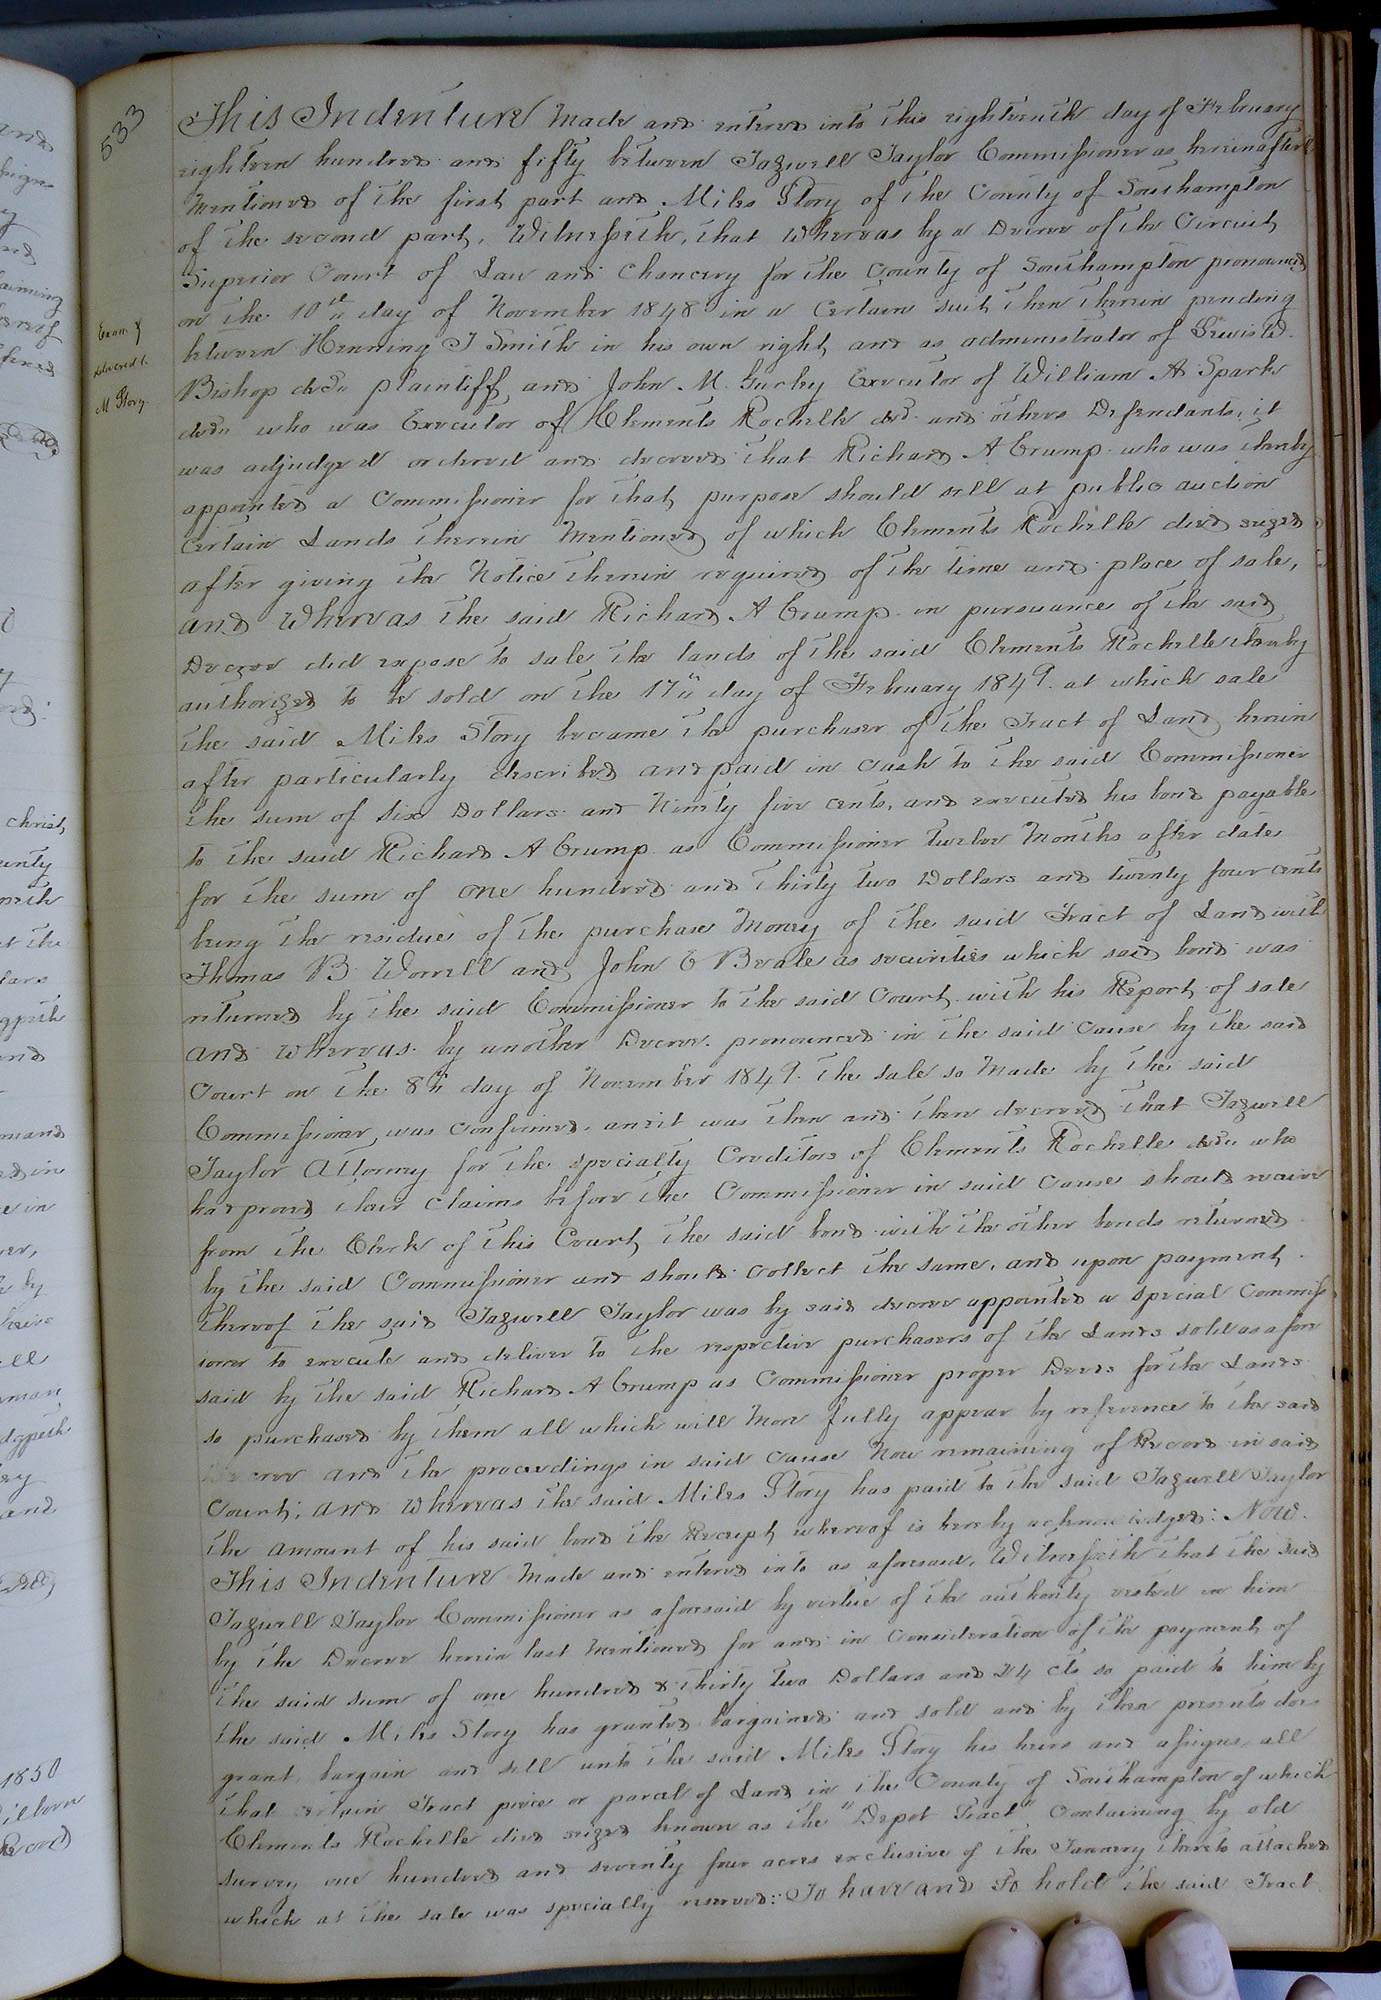 533
This Indenture Made and entered into this eighteenth day of February
eighteen hundred and fifty between Tazwell Taylor Commissioner as hereinafter
Mentioned of the first part and Miles Story of the County of Southampton
of the second part, Witnesseth, that Whereas by a Decree of the Circuit
Superior Court of Law and Chancery for the County of Southampton pronounced
on the 10th day of November 1848 in a Certain suit then therein pending
between Henning T Smith in his own right and as administrator of Lewis W.
Bishop decd. plaintiff and John M. Gurley Executor of William A Spark
decd. who was Executor of Clements Rochelle decd. and others Defendants, it
was adjudged ordered and decreed that Richard A Crump who was thereby
appointed a Commissioner for that purpose should sell at public auction
certain Lands therein Mentioned of which Clements Rochelle died seized
after giving the Notice therein required of the time and place of sale,
and Whereas the said Richard A Crump in pursuance of the said
Decree did expose to sale the lands of the said Clements Rochelle thereby
authorized to be sold on the 17th day of February 1849. at which sale
the said Miles Story became the purchaser of the Tract of Land herein
after particularly described and paid in cash to the said Commissioner
the sum of six Dollars and Ninety five cents, and executed his bond payable
to the said Richard A Crump as Commissioner twelve Months after date
for the sum of one hundred and thirty two Dollars and twenty four cents
being the residue of the purchase Money of the said Tract of Land with
Thomas B. Worrell and John E Beale as securities which said bond was
returned by the said Commissioner to the said Court with his Report of sale
and whereas by another Decree pronounced in the said Cause by the said
Court on the 8th day of November 1849. the sale so Made by the said
Commissioner, was confirmed, and it was then and then decreed that Tazwell
Taylor Attorney for the specialty Creditors of Clements Rochelle decd. who
had proved their claims before the Commissioner in said Cause should receive
from the Clerk of this Court the said bond with the other bonds returned
by the said Commissioner and should collect the same, and upon payment
thereof the said Tazwell Taylor was by said decree appointed a special Commiss
ioner to execute and deliver to the respective purchasers of the Lands sold as afore
said by the said Richard A Crump as Commissioner proper Deeds for the Lands
so purchased by them all which will More fully appear by reference to the said
Decree and the proceedings in said Cause Now remaining of Record in said
Court; and Whereas the said Miles Story has paid to the said Tazwell Taylor
the amount of his said bond the Receipt whereof is hereby acknowledged: Now.
This Indenture Made and entered into as aforesaid, Witnesseth that the said
Tazwell Taylor Commissioner as aforesaid by virtue of the authority vested in him
by the Decree herein last Mentioned for and in Consideration of the payment of
the said sum of one hundred & thirty two Dollars and 24 cts so paid to him by
the said Miles Story has granted bargained and sold and by these presents does
grant, bargain and sell unto the said Miles Story his heirs and assigns, all
that certain Tract piece or parcel of Land in the County of Southampton of which
Clements Rochelle died seized known as the "Depot Tract" Containing by old
survey one hundred and seventy four acres exclusive of the Tannery thereto attached
which at the sale was specially reserved: To have and to hold the said Tract
Exam. &
delivered to
M Story.